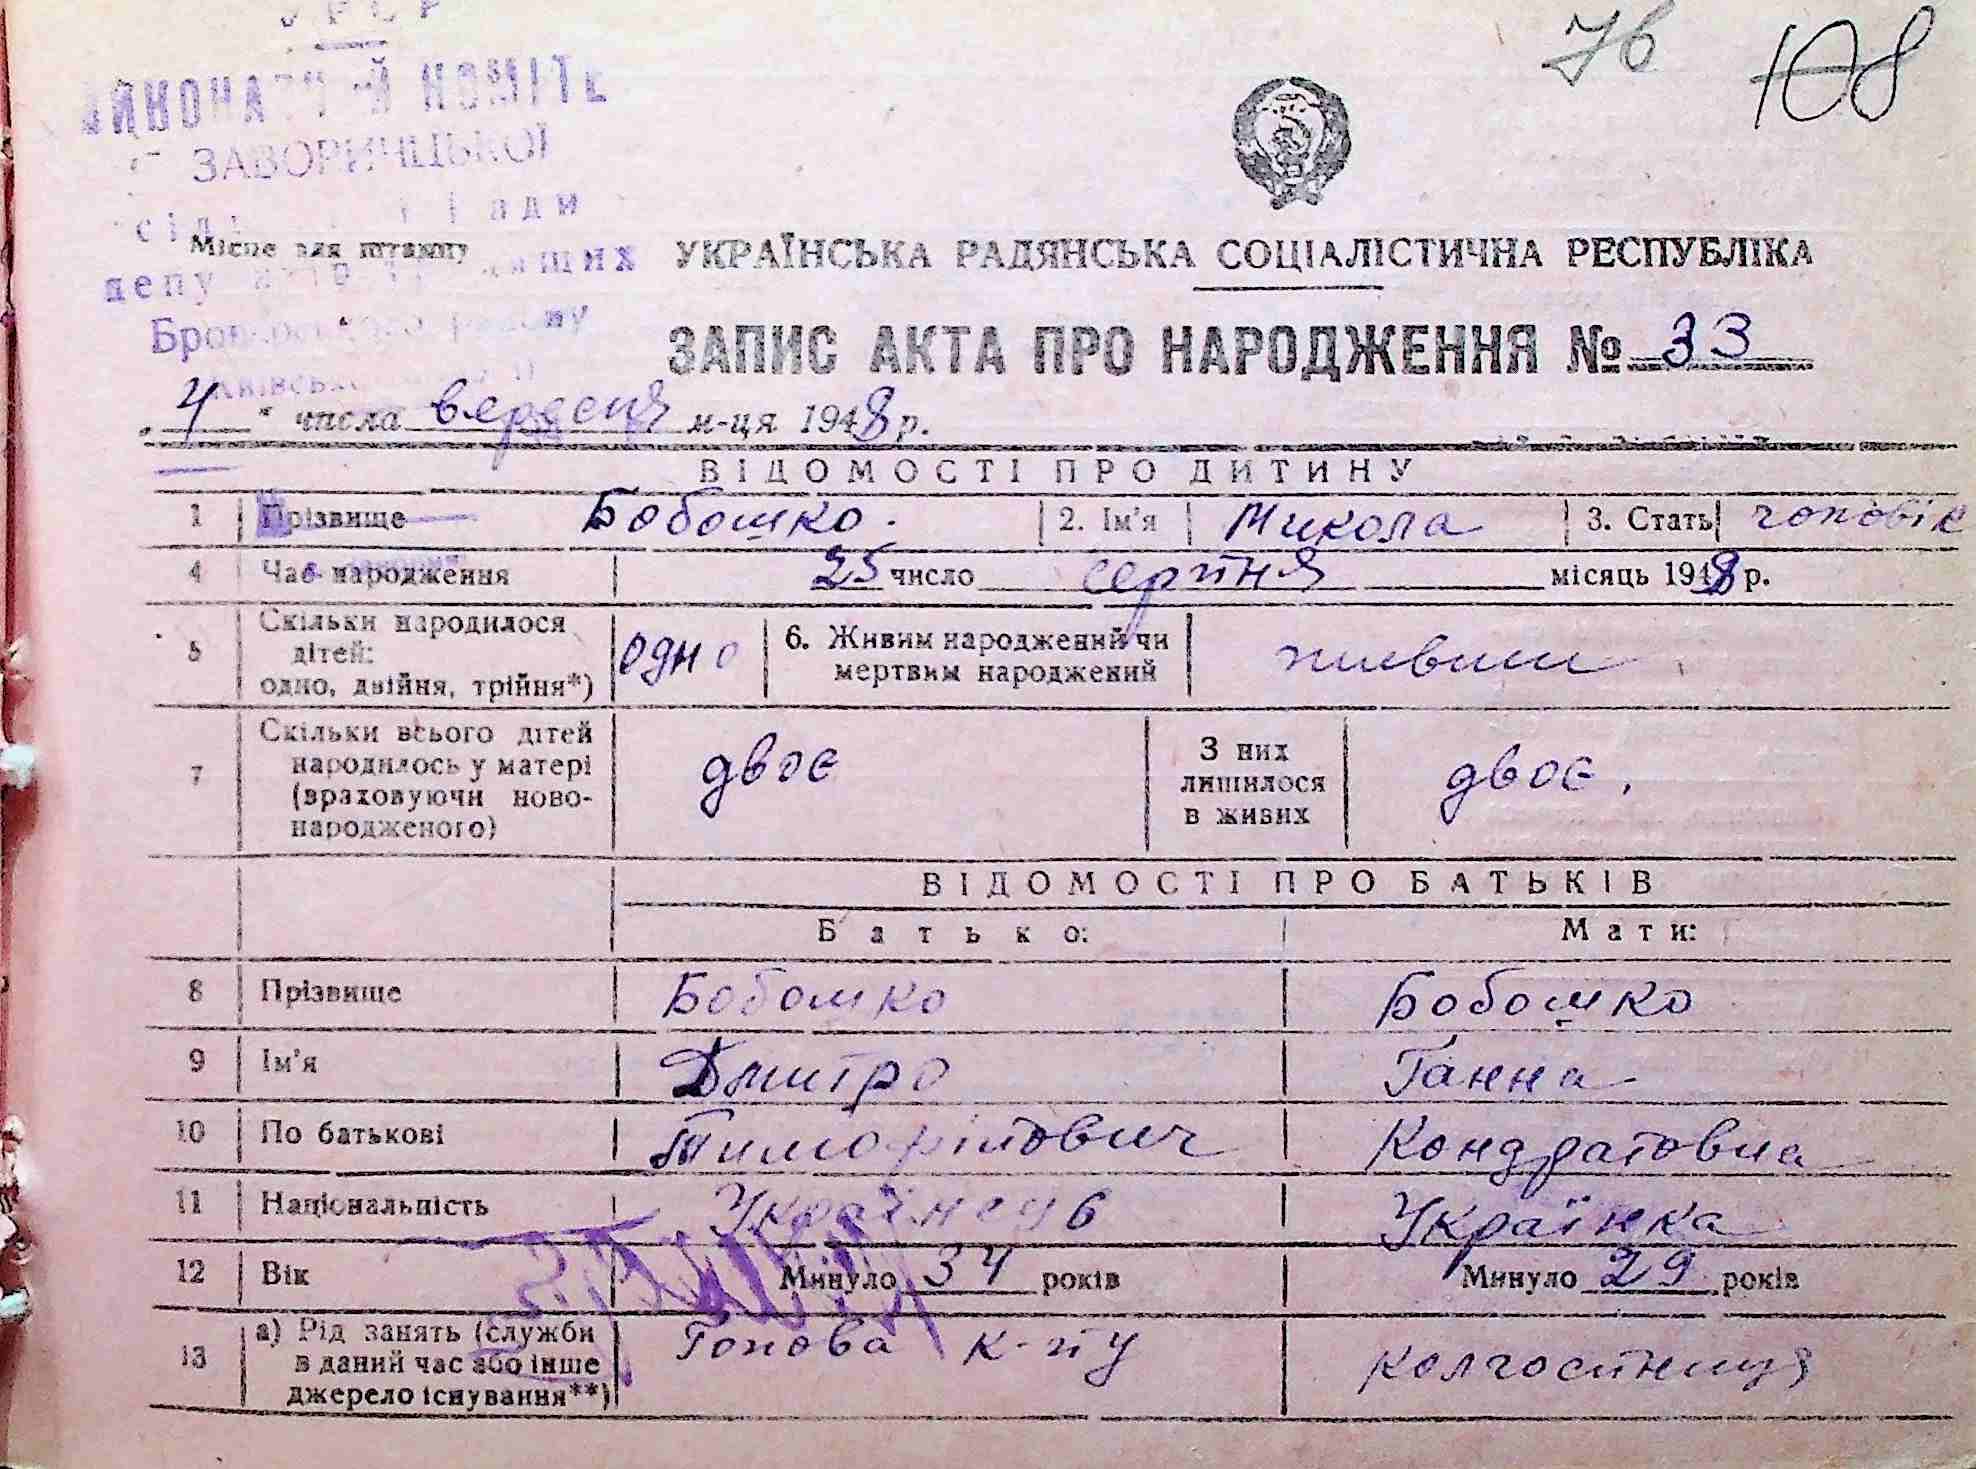 УРСР
76 108
ВИКОНАВЧИЙ КОМІТЕ
ЗАВОРИЧСЬКОЇ
Місце для штампу
УКРАЇНСЬКА РАДЯНСЬКА СОЦІАЛІСТИЧНА РЕСПУБЛІКА
ЗАПИС АКТА ПРО НАРОДЖЕННЯ № 33
„4" числа вересня м-ця 1948 р.
ВІДОМОСТІ ПРО ДИТИНУ
1 Прізвище Бобошко. 2. Ім'я Микола 3. Стать чоловік
4 Час народження 25 число серпня місяць 1948 р.
5 Скільки народилося дітей: одно, двійня, трійня*) одно 6. Живим народжений чи мертвим народжений живим
7 Скільки всього дітей народилось у матері (враховуючи новонародженого) двоє З них лишилося в живих двоє.
ВІДОМОСТІ ПРО БАТЬКІВ
Батько: Мати:
8 Прізвище Бобошко Бобошко
9 Ім'я Дмитро Ганна
10 По батькові Тимофійович Кондратовна
11 Національність Українець Українка
12 Вік Минуло 34 років Минуло 29 років
13 а) Рід занять (служби в даний час або інше джерело існування**) Голова к-пу колгоспниця